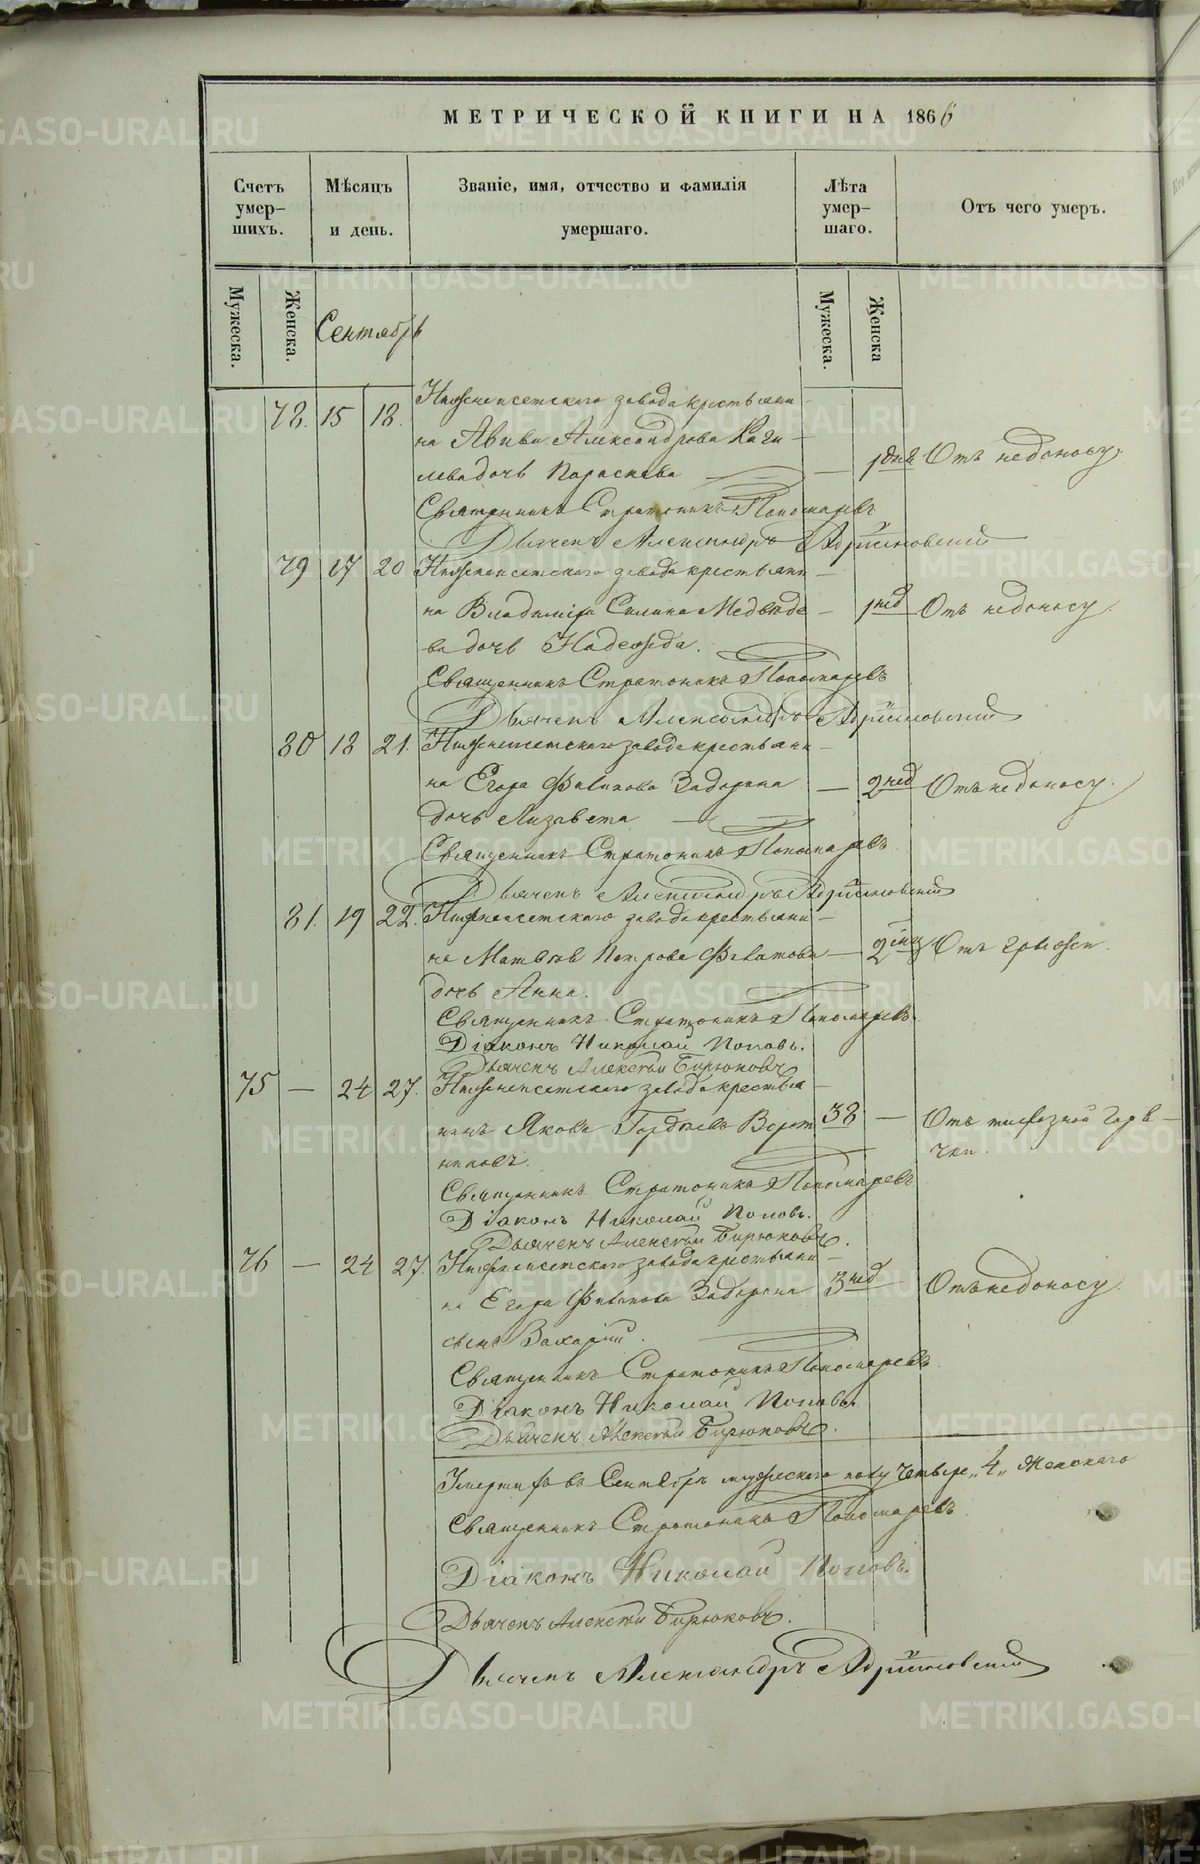 МЕТРИЧЕСКОЙ КНИГИ НА 1866
Счетъ умер- шихъ.
Мѣсяцъ и день.
Званіе, имя, отчество и фамилія умершаго.
Лѣта умер- шаго.
Отъ чего умеръ.
Мужеска.
Женска.
Сентябрь
Мужеска.
Женска
78. 15 18. Нижнеисетскаго завода крестьяни-
на Авива Александрова Каги-
лева дочь Параскева — 1 дня Отъ недоносу.
Священникъ Стратоникъ Пономаревъ
Дьячекъ Александръ Адріановскій
79 17 20 Нижнеисетскаго завода крестьяни-
на Владиміра Силина Медведе — 1 нед Отъ недоносу.
ва дочь Надежда.
Священникъ Стратоникъ Пономаревъ
Дьячекъ Александръ Адріановскій
80 18 21. Нижнеисетскаго завода крестьяни-
на Егора Задорина — 2 нед Отъ недоносу.
дочь Лизавета —
Священникъ Стратоникъ Пономаревъ
Дьячекъ Александръ Адріановскій
81. 19 22. Нижнеисетскаго завода крестьяни-
на Матвѣя Петрова Филатова — 2 мѣц Отъ грыжи.
дочь Анна.
Священникъ Стратоникъ Пономаревъ.
Діаконъ Николай Поповъ.
Дьячекъ Алексѣй Бирюковъ
75 — 24 27. Нижнеисетскаго завода крестья-
нинъ Яковъ Гордѣевъ Ворот 38 — Отъ тифозной горя-
никовъ. чки.
Священникъ Стратоникъ Пономаревъ
Діаконъ Николай Поповъ.
Дьячекъ Алексѣй Бирюковъ.
76 — 24 27. Нижнеисетскаго завода крестьяни-
на Егора Задорина 3 нед Отъ недоносу.
сынъ Захарій.
Священникъ Стратоникъ Пономаревъ
Діаконъ Николай Поповъ.
Дьячекъ Алексѣй Бирюковъ.
въ Сентябрѣ мужескаго полу четыре „4„ Женскаго
Священникъ Стратоникъ Пономаревъ
Діаконъ Николай Поповъ.
Дьячекъ Алексѣй Бирюковъ.
Дьячекъ Александръ Адріановскій
METRIKI.GASO-URAL.RU